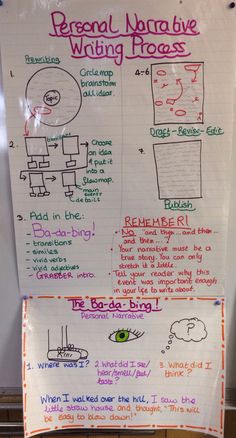 Personal Narrative
Writing Process
Prewriting
1.
Topic
Circle map
brainstorm
all ideas.
4-6.
Draft - Revise - Edit
2.
transitions
Choose
an idea
+ put it
into a
flowmap.
main
event
details
7.
Publish
3. Add in the:
Ba-da-bing!
- transitions
- similes
- vivid verbs
- vivid adjectives
- GRABBER intro.
REMEMBER!
· No "and then... and then...
and then...."
· Your narrative must be a
true story. You can only
stretch it a little.
· Tell your reader why this
event was important enough
in your life to write about.
The Ba-da-bing!
Personal Narrative
1. Where was I?
2. What did I see/
hear/smell/feel/
taste?
3. What did I
think?
When I walked over the hill, I saw the
little straw house and thought, "This will
be easy to blow down!"